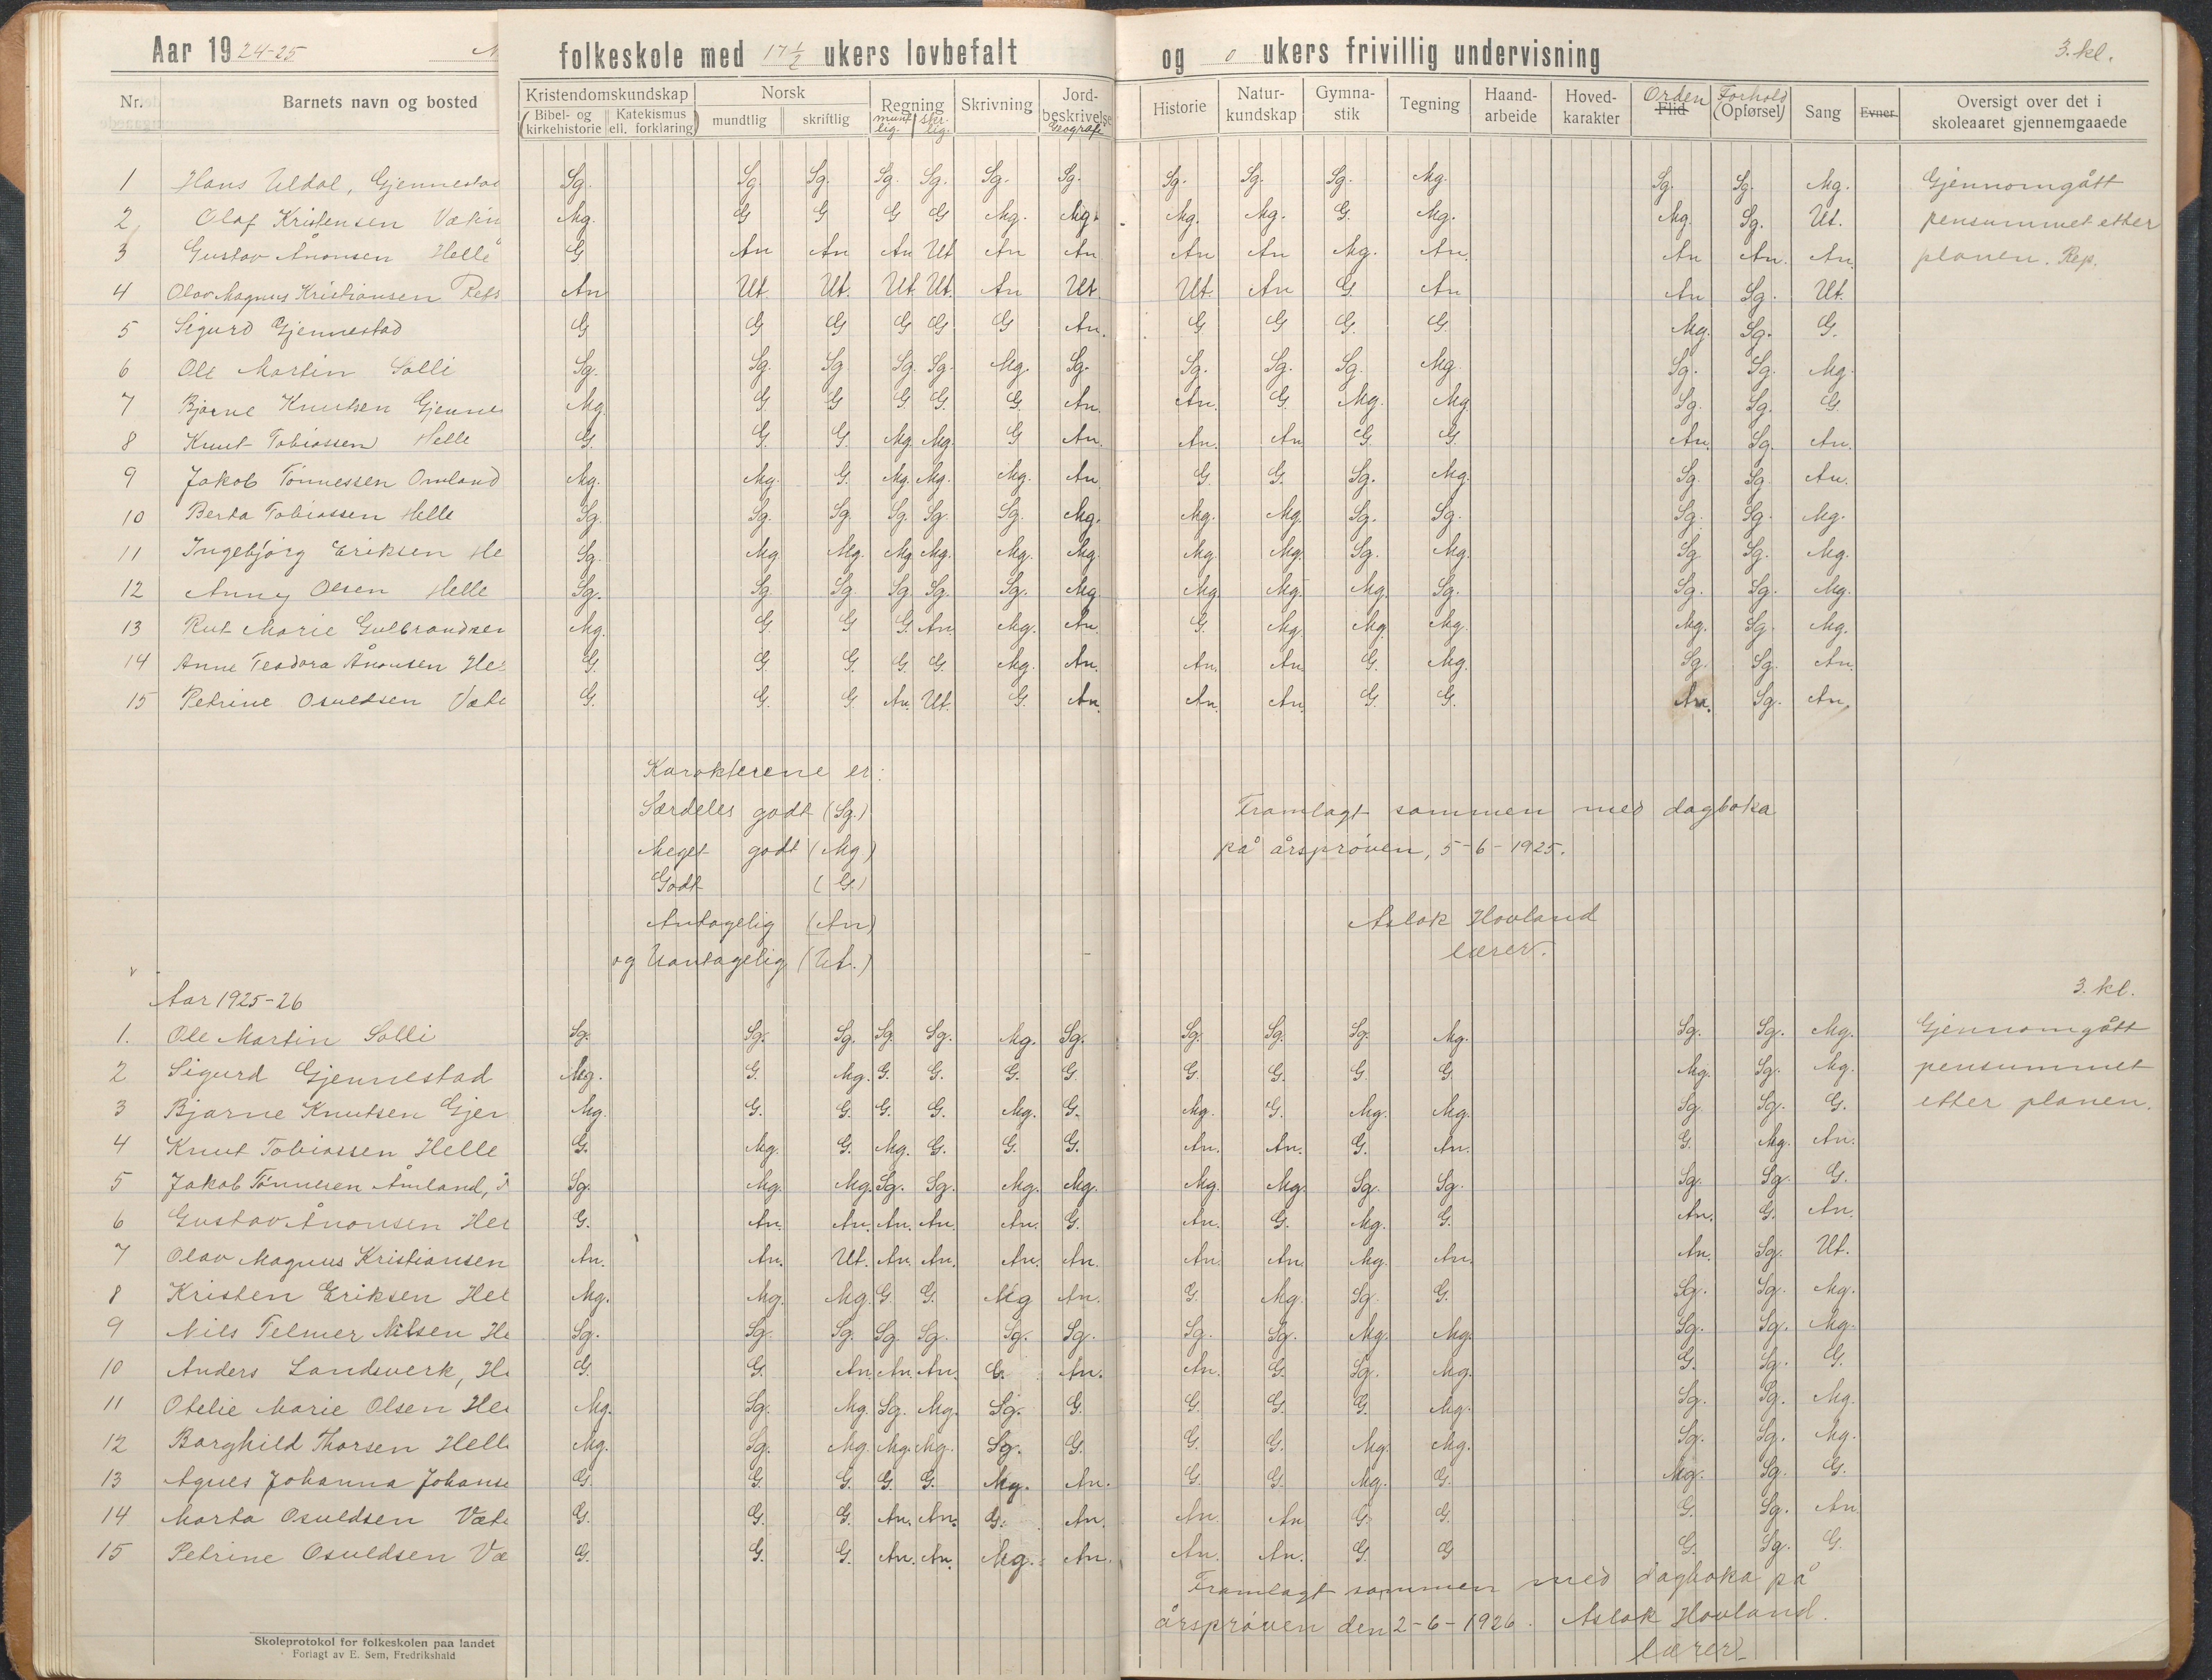 Aar 1924-25 folkeskole med 17 1/2 ukers lovbefalt og 0 ukers frivillig undervisning 3. kl.
Nr. Barnets navn og bosted Kristendomskundskap (Bibel- og kirkehistorie Katekismus ell. forklaring) Norsk mundtlig skriftlig Regning munt lig. skr. lig. Skrivning Jordbeskrivelse Geografi Historie Naturkundskap Gymnastik Tegning Haandarbeide Hovedkarakter Orden Flid Forhold (Opførsel) Sang Evner Oversigt over det i skoleaaret gjennemgaaede
1 Hans Uldal, Gjennestad Sg. Sg. Sg. Sg. Sg. Sg. Sg. Sg. Sg. Sg. Mg. Sg. Sg. Mg. Gjennomgått
2 Olaf Kristensen Vætin Mg. G G G G Mg. Mg. Mg. Mg. G. Mg. Mg. Sg. Ut. pensummet etter
3 Gustav Ånonsen Helle G An An An Ut An An An An Mg. An. An An. An. planen. Rep.
4 Olav Magnus Kristiansen Refs An Ut. Ut. Ut. Ut. An Ut. Ut. An G. An An Sg. Ut.
5 Sigurd Gjennestad G G G G G G An. G G G. G. Mg. Sg. G.
6 Ole Martin Solli Sg. Sg. Sg Sg. Sg. Mg. Sg. Sg. Sg. Sg. Mg. Sg. Sg. Mg.
7 Bjarne Knutsen Gjennes Mg. G. G G. G. G. An. An. G. Mg. Mg. Sg. Sg. G.
8 Knut Tobiassen Helle G. G. G. Mg. Mg. G An. An. An G. G. An. Sg. An.
9 Jakob Tönnessen Omland Mg. Mg. G. Mg. Mg. Mg. An. G. G. Sg. Mg. Sg. Sg. An.
10 Berta Tobiassen Helle Sg. Sg. Sg. Sg. Sg. Sg. Mg. Mg. Mg. Sg. Sg. Sg. Sg. Mg.
11 Ingebjörg Eriksen He Sg. Mg. Mg. Mg. Mg. Mg. Mg. Mg. Mg. Sg. Mg. Sg. Sg. Mg.
12 Anny Olsen Helle Sg. Sg. Sg. Sg. Sg. Sg. Mg Mg. Mg. Mg. Sg. Sg. Sg. Mg.
13 Rut Marie Gulbrandsen Mg. G. G G. An. Mg. An. G. Mg. Mg. Mg. Mg. Sg. Mg.
14 Anne Teodora Ånonsen Hel G. G. G. G. G. Mg. An. An. An. G. Mg. Sg. Sg. An.
15 Petrine Osuldsen Væte G. G. G. An. Ut. G. An. An. An. G. G. An. Sg. An.
Karakterene er:
Særdeles godt (Sg.)
Meget godt (Mg)
Godt (G)
Antagelig (An)
og Uantagelig (Ut.)
Framlagt sammen med dagboka
på årspröven, 5-6-1925.
Aslak Hovland
lærer.
Aar 1925-26 3. kl.
1. Ole Martin Solli Sg. Sg. Sg. Sg. Sg. Mg. Sg. Sg. Sg. Sg. Mg. Sg. Sg. Mg. Gjennomgått
2 Sigurd Gjennestad Mg. G. Mg. G. G. G. G. G. G. G. G. Mg. Sg. Mg. pensummet
3 Bjarne Knutsen Gjen Mg. G. G. G. G. Mg. G. Mg. G. Mg. Mg. Sg. Sg. G. etter planen.
4 Knut Tobiassen Helle G. Mg. G. Mg. G. G. G. An. An. G. An. G. Mg. An.
5 Jakob Tönnesen Åmland, Sg. Mg. Mg. Sg. Sg. Mg. Mg. Mg. Mg. Sg. Sg. Sg. Sg. G.
6 Gustav Ånonsen Hel G. An. An. An. An. An. G. An. G. Mg. G. An. G. An.
7 Olav Magnus Kristiansen An. An. Ut. An. An. An. An. An. An. Mg. An. An. Sg. Ut.
8 Kristen Eriksen Hel Mg. Mg. Mg. G. G. Mg An. G. Mg. Sg. G. Sg. Sg. Mg.
9 Nils Telmer Nilsen He Sg. Sg. Sg. Sg. Sg. Sg. Sg. Sg. Sg. Mg. Mg. Sg. Sg. Mg.
10 Anders Landsverk, He G. G. An. An. An. G. An. An. G. Sg. Mg. G. Sg. G.
11 Otelie Marie Olsen Hel Mg. Sg. Mg. Sg. Mg. Sg. G. G. G. G. Mg. Sg. Sg. Mg.
12 Borghild Thorsen Helle Mg. Sg. Mg. Mg. Mg. Sg. G. G. G. Mg. Mg. Sg. Sg. Mg.
13 Agnes Johanna Johanse G. G. G. G. G. Mg. An. G. G. Mg. G. Mg. Sg. G.
14 Marta Osuldsen Væte G. G. G. An. An. G. An. An. An G. G. G. Sg. An
15 Petrine Osuldsen Væ G. G. G. An. An. Mg. An. An. An. G. G G. Sg. G.
Framlagt sammen med dagboka på
årspröven den 2-6-1926. Aslak Hovland.
lærer
Skoleprotokol for folkeskolen paa landet
Forlagt av E. Sem, Fredrikshald